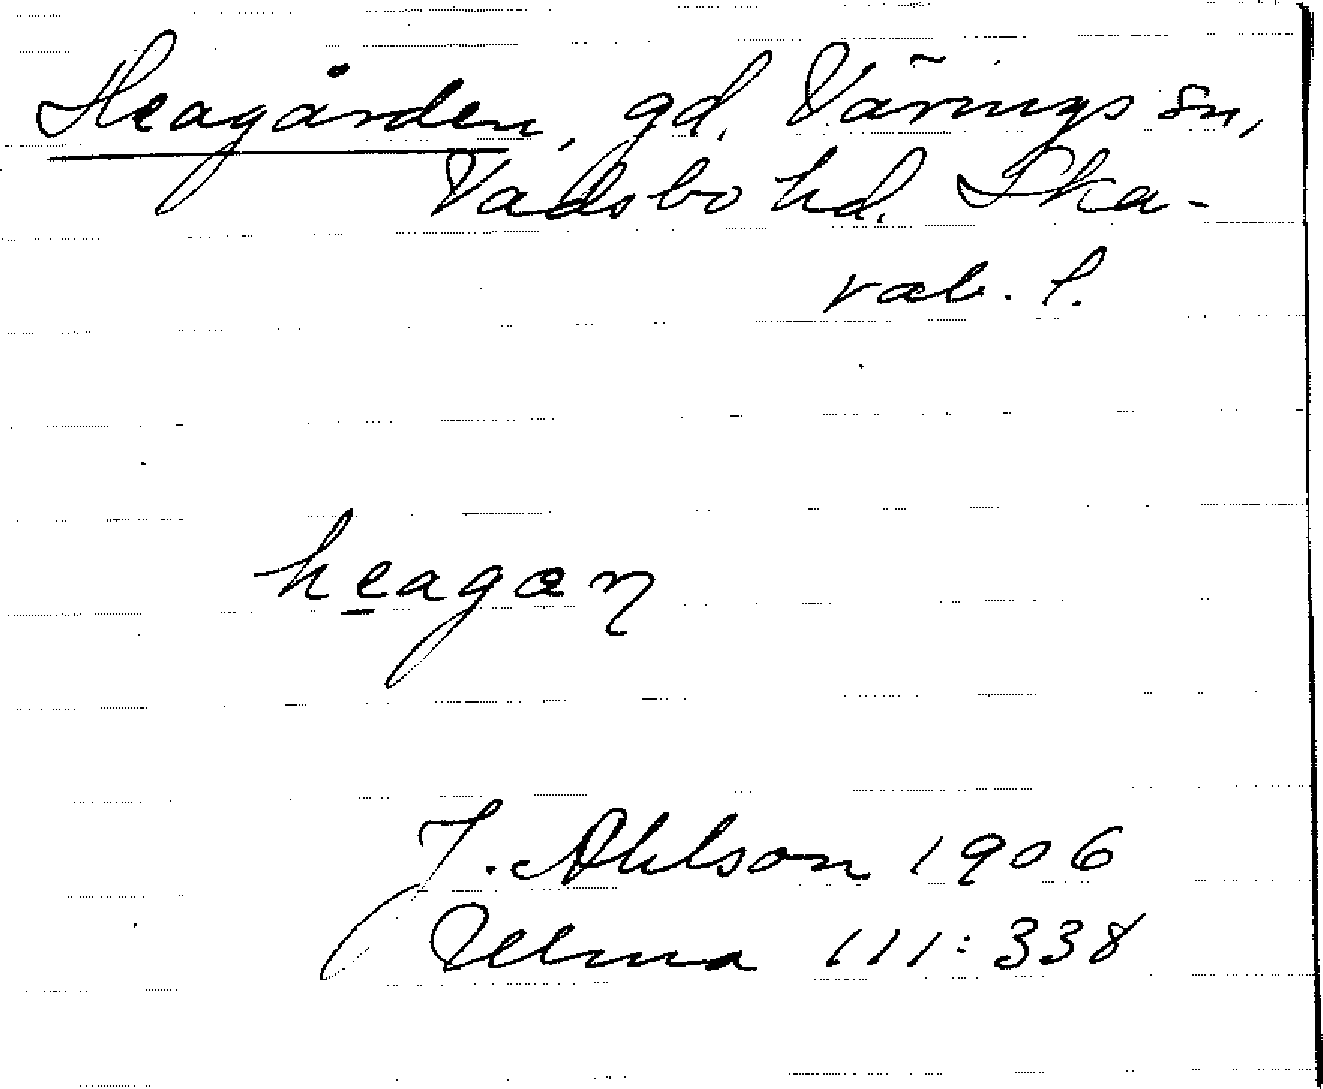 Heagården, gd, Värings sn,
Vadsbo hd. Ska-
rab. l.
heagan
J. Ahlson 1906
Ulma 111:338